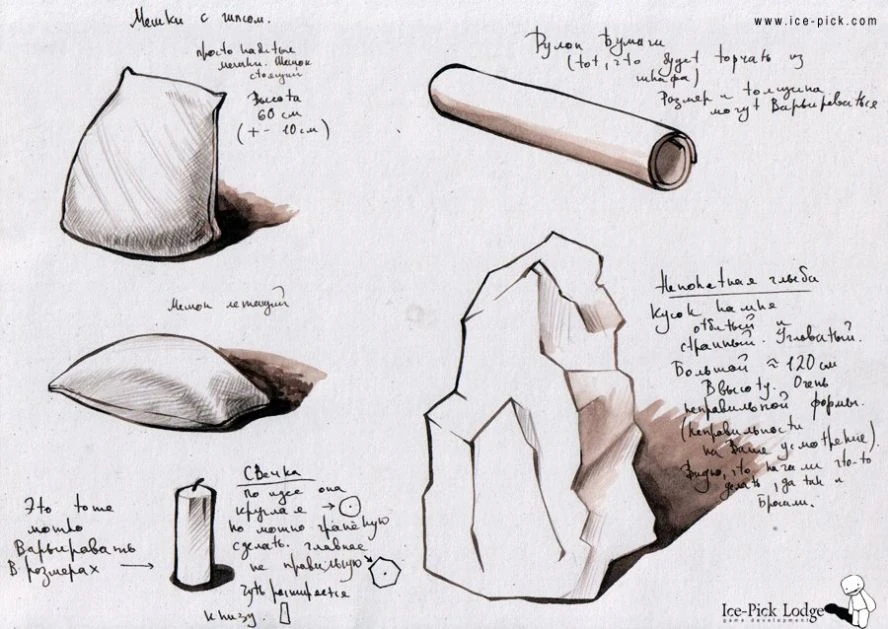 Мешки с гипсом.
www.ice-pick.com
просто набитые
мешки. Мешок
стоящий
Высота
60 см
(+- 10см)
Рулон бумаги
(тот, что будет торчать из
шкафа)
Размер и толщина
могут варьироваться
Мешок лежащий
Непонятная глыба
Кусок камня
отбитый и
странный. Угловатый.
Большой ≈ 120 см
в высоту. Очень
неправильной формы.
(неправильности
на Ваше усмотрение).
Видно, что начали что-то
делать, да так и
бросили.
Свечка
по идее она
круглая →
но можно гранёную
сделать. Главное
не правильную
чуть расширяется
к низу.
Это тоже
можно
Варьировать
в размерах →
Ice-Pick Lodge
game development